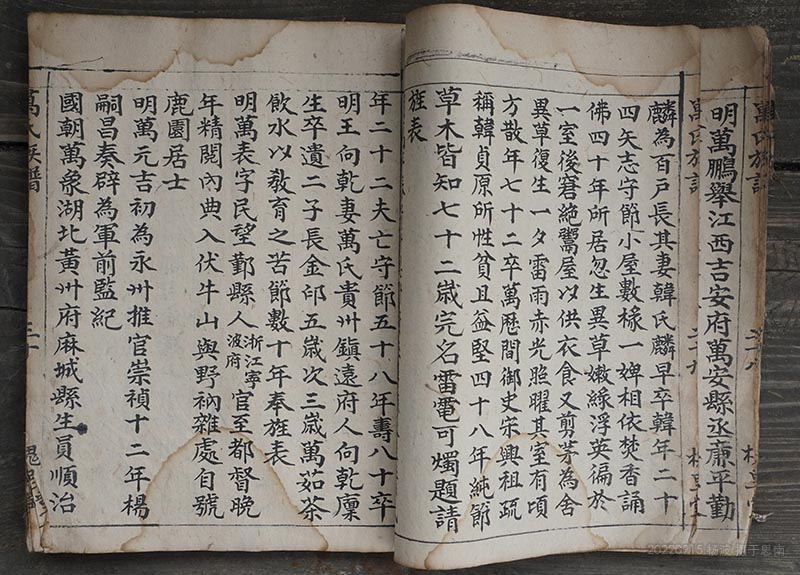 明萬鵬舉江西吉安府萬安縣丞廉平勤
麟為百戶長其妻韓氏麟早卒韓年二十
四矢志守節小屋數椽一婢相依焚香誦
佛四十年所居忽生異草嫩綠浮英徧於
一室後窘絕鬻屋以供衣食又剪茅為舍
異草復生一夕雷雨赤光照曜其室有頃
方散年七十二卒萬曆間御史宋興祖疏
稱韓貞原所性貧且益堅四十八年純節
草木皆知七十二歲完名雷電可燭題請
旌表
年二十二夫亡守節五十八年壽八十卒
明王向乾妻萬氏貴州鎮遠府人向乾廩
生卒遺二子長金卭五歲次三歲萬茹茶
飲水以教育之苦節數十年奉旌表
明萬表字民望鄞縣人浙江寧波府官至都督晚
年精閱內典入伏牛山與野衲雜處自號
鹿園居士
明萬元吉初為永州推官崇禎十二年楊
嗣昌奏辟為軍前監紀
國朝萬象湖北黃州府麻城縣生員順治
萬氏族譜
三十